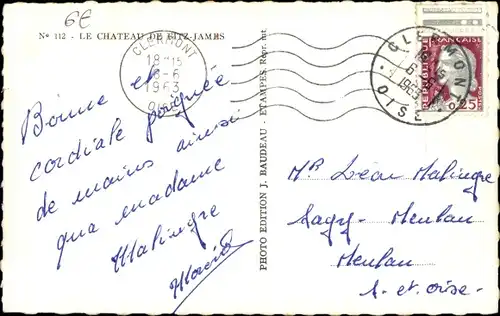 6E
N° 112 - LE CHATEAU DE FITZ-JAMES
CLERMONT
18H15
6-6
1963
OISE
CLERMONT
18H15
6-6
1963
OISE
FRANÇAISE
0,25
Bonne et
cordiale poignée
de mains ainsi
qua madame
Malingre
PHOTO EDITION J. BAUDEAU - ETAMPES Repr. int.
Mr Léon Malingre
Sagy - Meulan
Meulan
S. et. Oise.